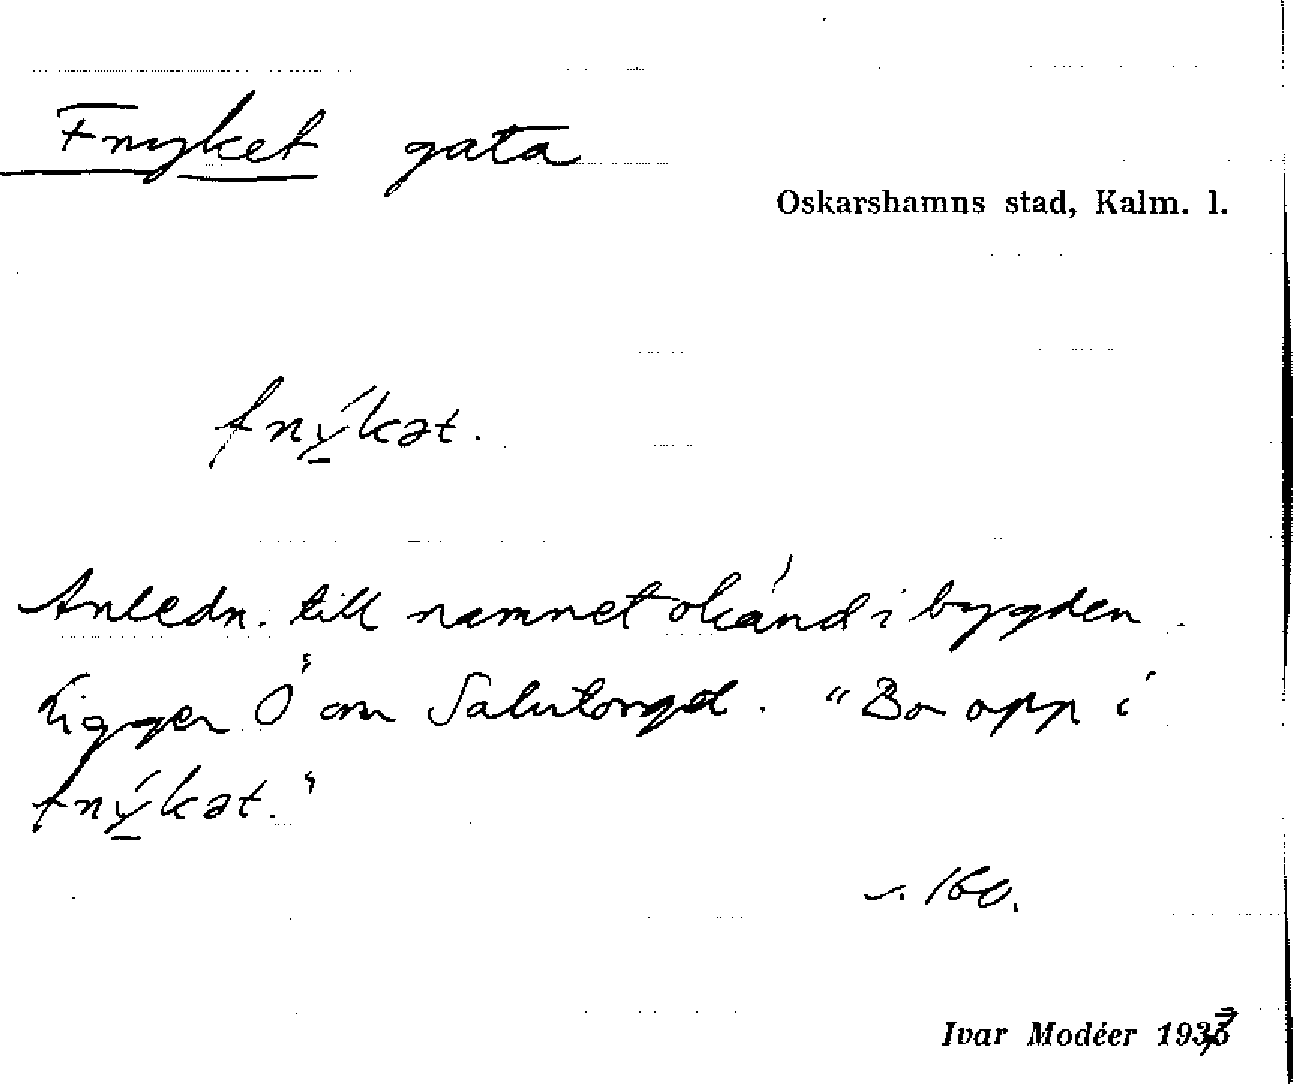 Fnyket gata
Oskarshamns stad, Kalm. l.
fný̱kət.
Anledn. till namnet okänd i bygden.
Ligger Ö om Salutorget. "Bor opp i
fný̱kət."
s. 160.
Ivar Modéer 1937